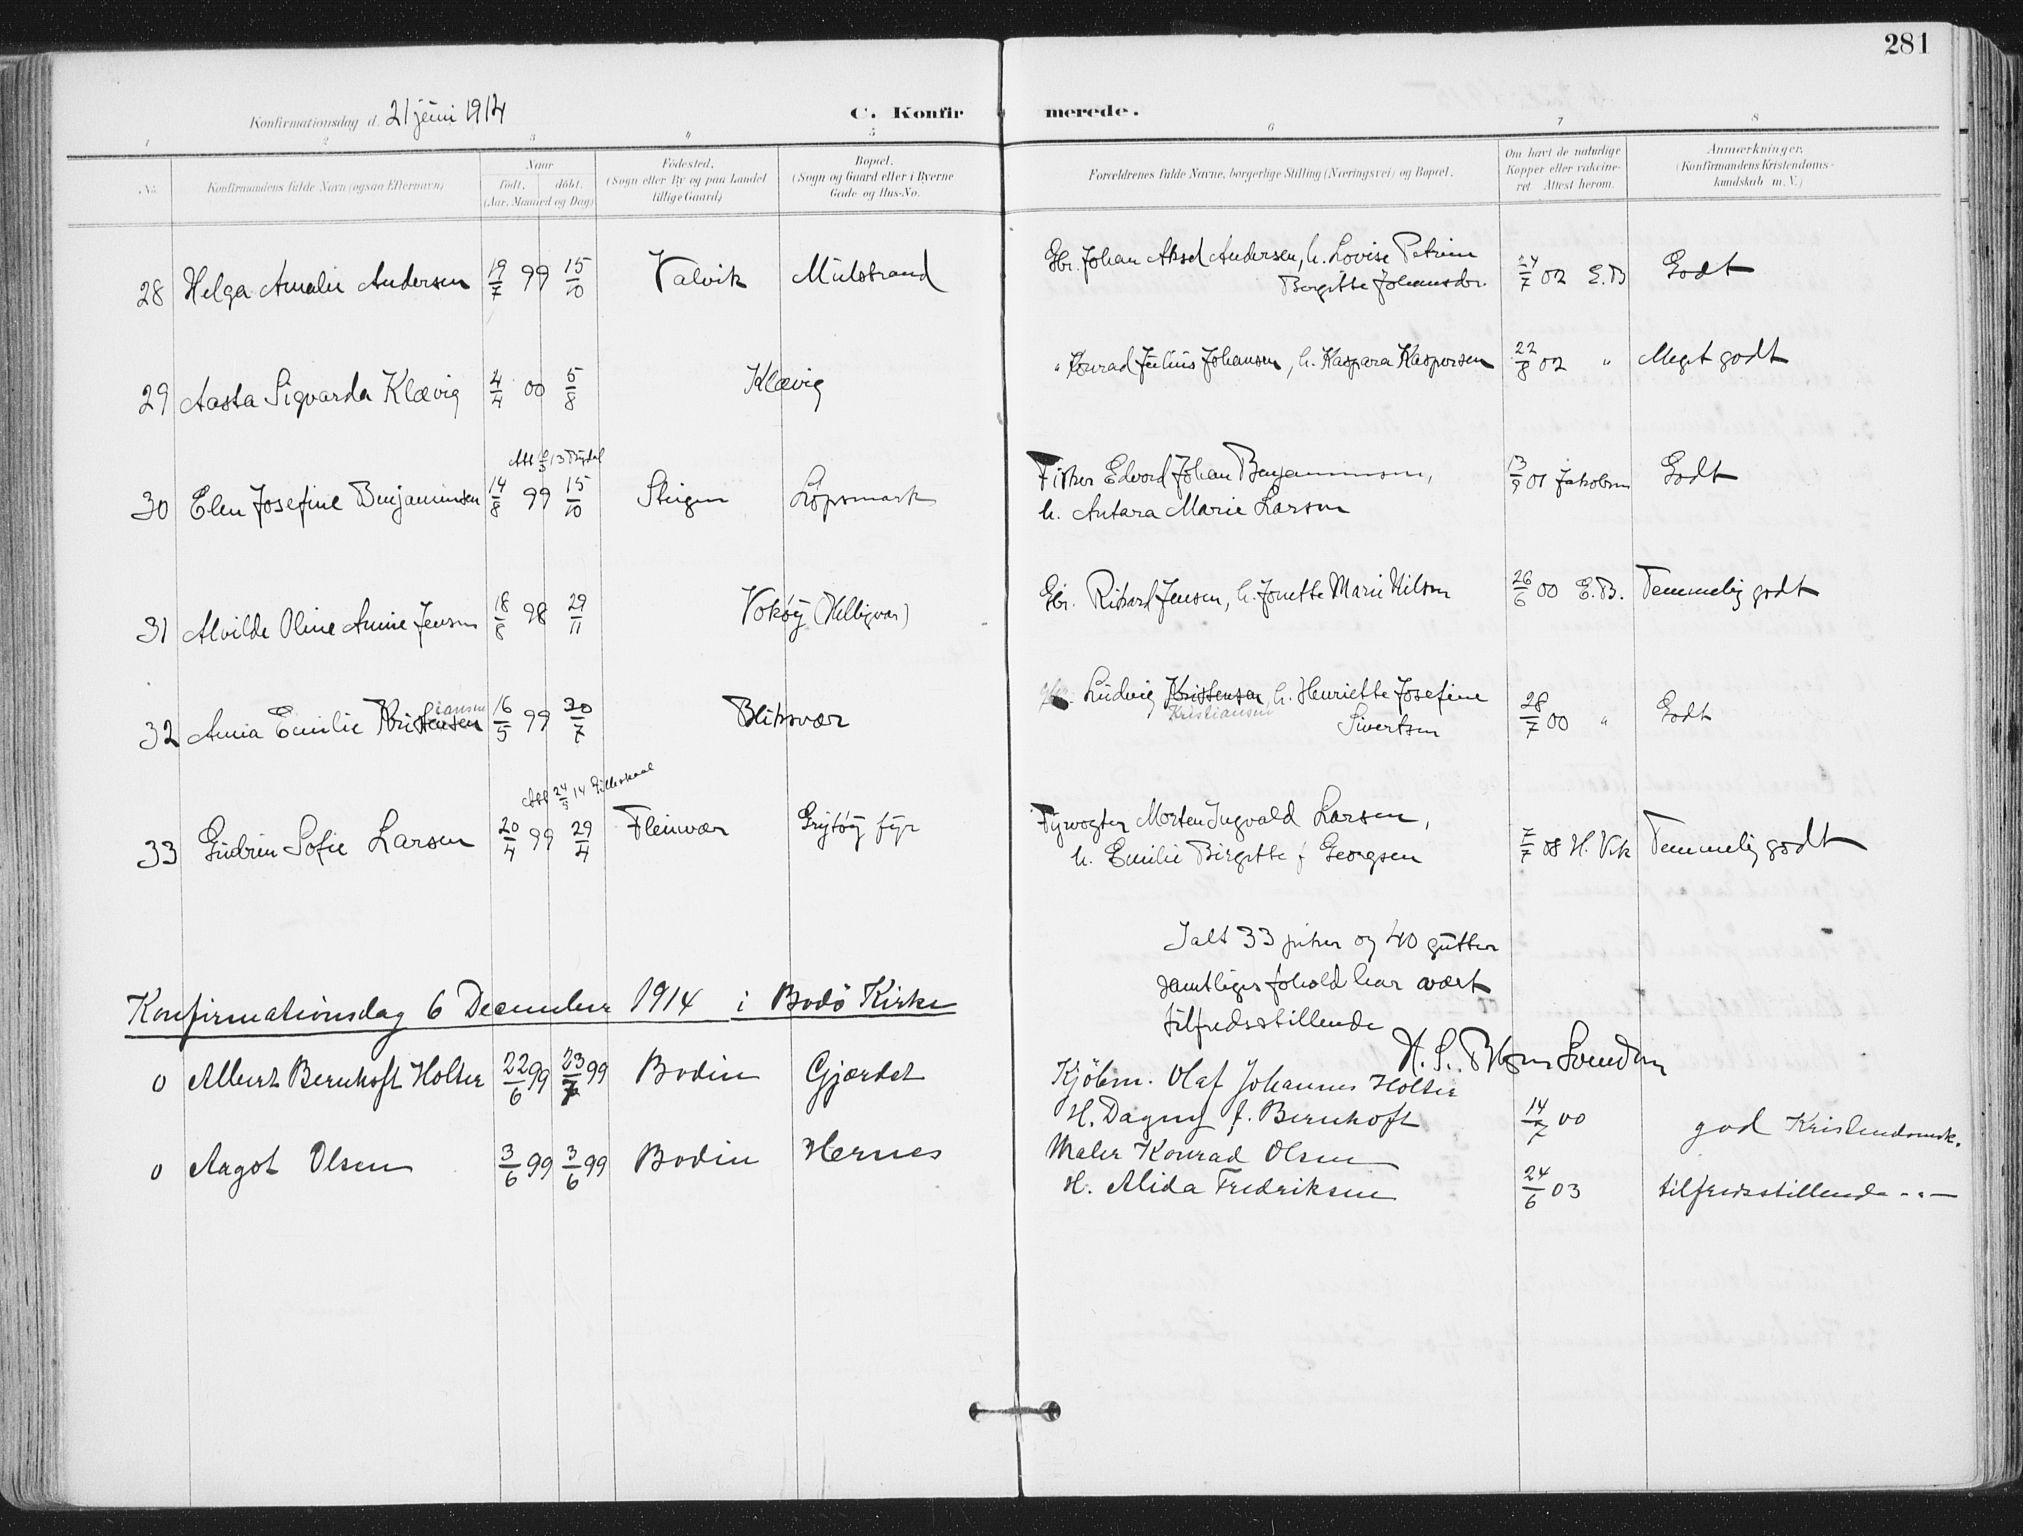 281
Konfirmationsdag d. 21 juni 1914
C. Konfirmerede.
1 2 3 4 5 6 7 8
No.
Konfirmandens fulde Navn (ogsaa Efternavn)
Naar
födt. döbt.
(Aar, Maaned og Dag)
Födested.
(Sogn eller By og paa Landet
tillige Gaard)
Bopæl.
(Sogn og Gaard eller i Byerne
Gade- og Hus-No.
Forældrenes fulde Navne, borgerlige Stilling (Næringsvei) og Bopæl.
Om havt de naturlige
Kopper eller vakcine-
ret Attest herom.
Anmærkninger.
(Konfirmandens Kristendoms-
kundskab m. V.)
28 Helga Amalie Andersen 19/7 99 15/10 Valvik Mulstrand
Gbr. Johan Aksel Andersen, h. Lovise Petrine
Bergitte Johansdr. 24/7 02 E.B Godt
29 Aasta Sigvarda Klævig 4/4 00 5/8 Klævig
" Konrad Julius Johansen, h. Kaspara Kaspersen 22/8 02 " Meget godt
30 Elen Josefine Benjaminsen 14/8 99 15/10 Steigen Löpsmark
Fisker Edvard Johan Benjaminsen,
h. Antara Marie Larsen 13/9 01 Jakobsen Godt
31 Alvilde Oline Annie Jensen 18/8 98 29/11 Vokøy (Helligvær)
Gbr. Rikard Jensen, h. Jonette Marie Nilsen 26/6 00 E.B. Temmelig godt
32 Anna Emilie Kristensen iansen 16/5 99 30/7 Bliksvær
Ludvig Kristensen h. Henriette Josefine
Kristiansen Sivertsen 28/7 00 " Godt
Att 24/5 14
33 Gudrun Sofie Larsen 20/4 99 29/4 Fleinvær Grytöy fyr
Fyrvogter Morten Ingvald Larsen,
h. Emilie Birgitte f Georgsen 7/7 08 H. Vik Temmelig godt
Ialt 33 piker og 40 gutter
samtliges fohold har vært
tilfredsstillende
Konfirmationsdag 6 December 1914 i Bodö Kirke
0 Albert Bernhoft Holter 22/6 99 23/7 99 Bodin Gjærdet
Kjöbm. Olaf Johannes Holter
H. Dagny f. Bernhoft 14/7 00 god Kristendomsk.
0 Aagot Olsen 3/6 99 3/6 99 Bodin Hernes
Maler Konrad Olsen
H. Alida Fredriksen 24/6 03 tilfredsstillende -"-